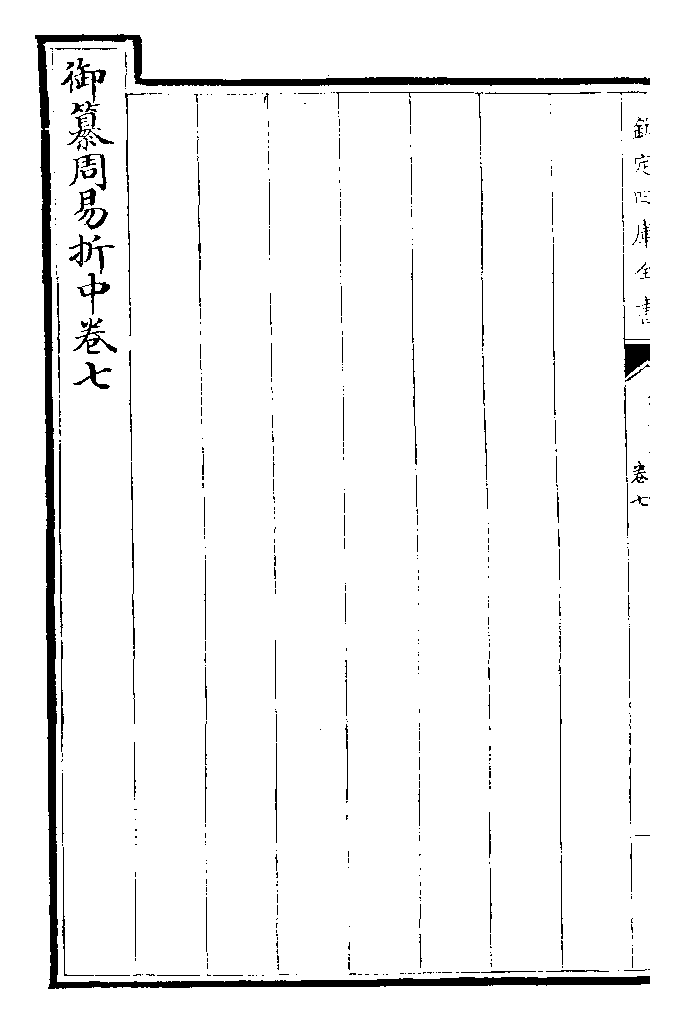 欽定四庫全書
卷七
御纂周易折中卷七